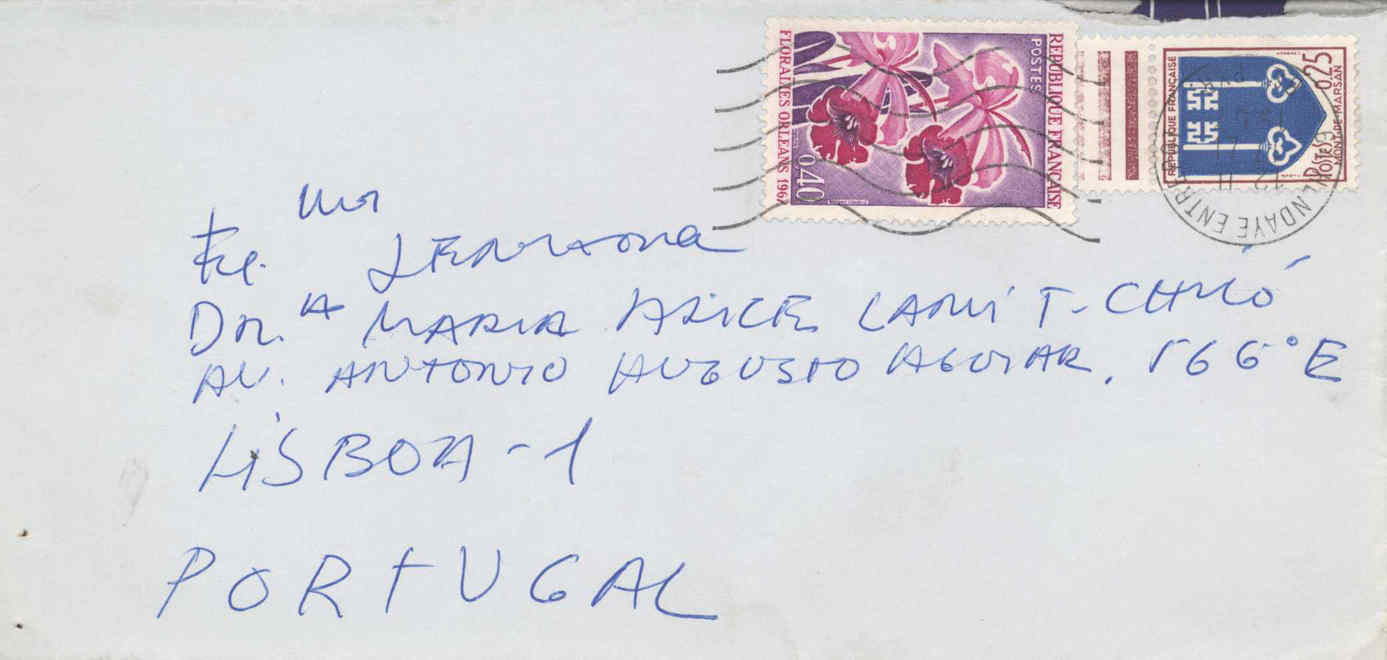 RÉPUBLIQUE FRANÇAISE
POSTES
0,40
FLORALIES ORLÉANS 1967
RÉPUBLIQUE FRANÇAISE
0,25
MONT-DE-MARSAN
POSTES
ENDAYE ENTRE
Ex. ma Senhora
Dr.A MARIA ALICE LAMI T. CHICÓ
AV. ANTONIO AUGUSTO AGUIAR, 56 6° E
LISBOA-1
PORTUGAL